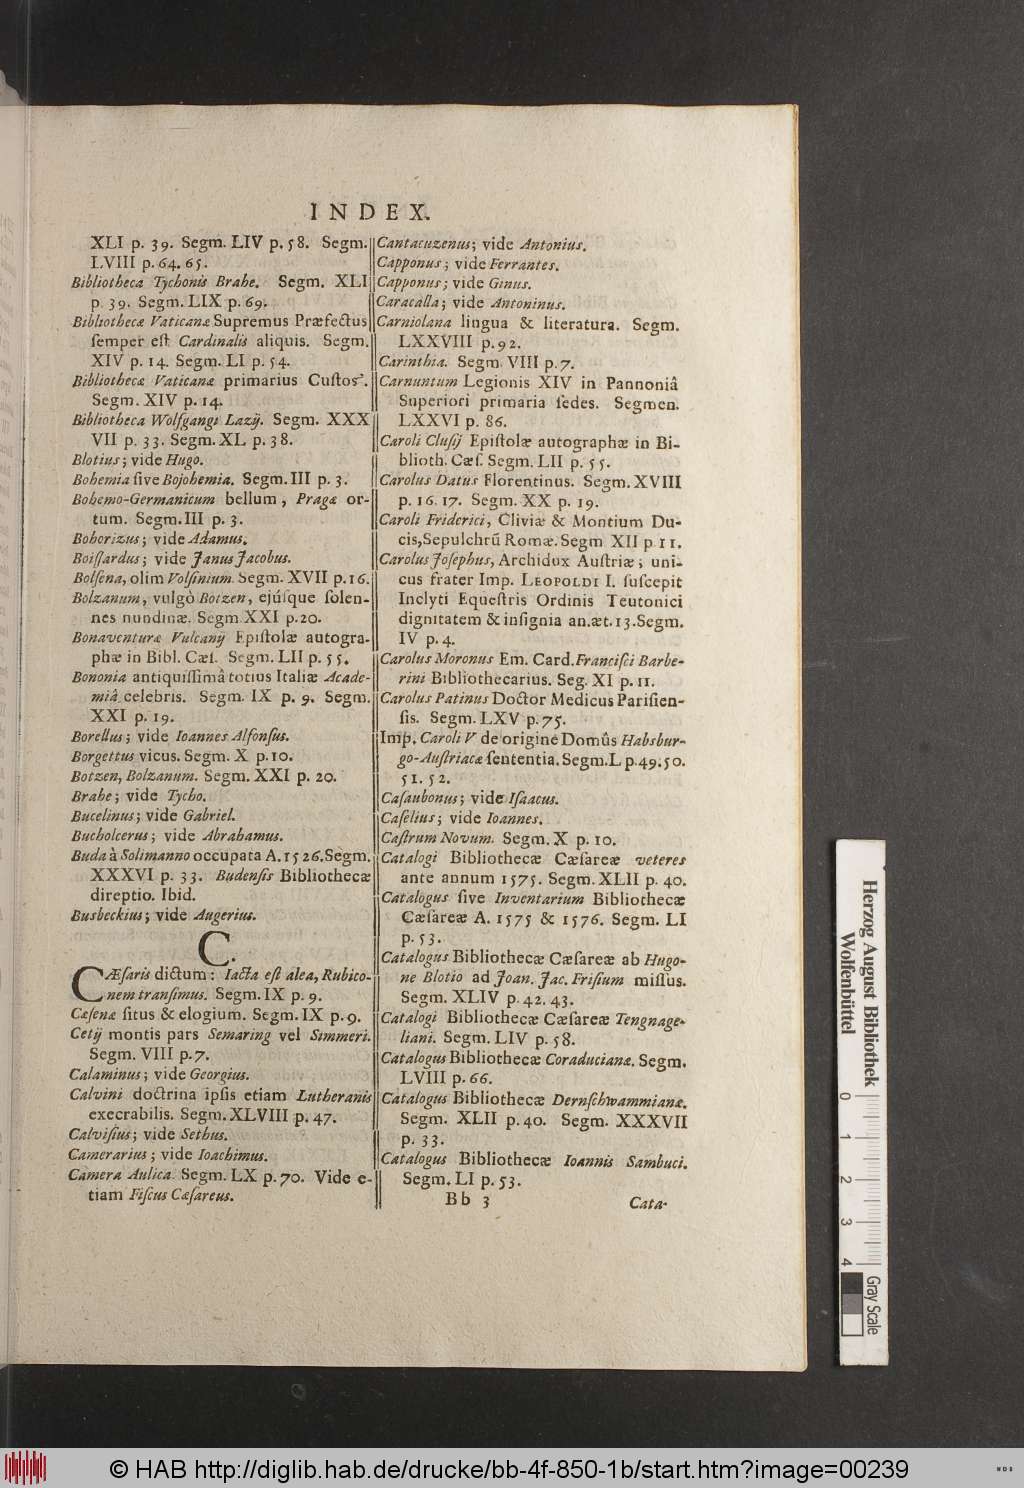 INDEX.
XLI p. 39. Segm. LIV p. 58. Segm.
LVIII p. 64. 65.
Bibliotheca Tychonis Brahe. Segm. XLI
p. 39. Segm. LIX p. 69.
Bibliothecæ Vaticanæ Supremus Præfectus
ſemper eſt Cardinalis aliquis. Segm.
XIV p. 14. Segm. LI p. 54.
Bibliothecæ Vaticanæ primarius Cuſtos.
Segm. XIV p. 14.
Bibliotheca Wolfgangi Lazij. Segm. XXX
VII p. 33. Segm. XL p. 38.
Blotius; vide Hugo.
Bohemia ſive Bojohemia. Segm. III p. 3.
Bohemo-Germanicum bellum, Pragæ or-
tum. Segm. III p. 3.
Bohorizus; vide Adamus.
Boiſſardus; vide Janus Jacobus.
Bolſena, olim Volſinium. Segm. XVII p. 16.
Bolzanum, vulgò Botzen, ejúſque ſolen-
nes nundinæ. Segm XXI p. 20.
Bonaventuræ Vulcanij Epiſtolæ autogra-
phæ in Bibl. Cæſ. Segm. LII p. 55.
Bononia antiquiſſimâ totius Italiæ Acade-
miâ celebris. Segm. IX p. 9. Segm.
XXI p. 19.
Borellus; vide Ioannes Alfonſus.
Borgettus vicus. Segm. X p. 10.
Botzen, Bolzanum. Segm. XXI p. 20.
Brahe; vide Tycho.
Bucelinus; vide Gabriel.
Bucholcerus; vide Abrahamus.
Buda à Solimanno occupata A. 1526. Segm.
XXXVI p. 33. Budenſis Bibliothecæ
direptio. Ibid.
Busbeckius; vide Augerius.
C.
CÆſaris dictum: Iacta eſt alea, Rubico-
nem tranſimus. Segm. IX p. 9.
Cæſenæ ſitus & elogium. Segm. IX p. 9.
Cetij montis pars Semaring vel Simmeri.
Segm. VIII p. 7.
Calaminus; vide Georgius.
Calvini doctrina ipſis etiam Lutheranis
execrabilis. Segm. XLVIII p. 47.
Calviſius; vide Sethus.
Camerarius; vide Ioachimus.
Camera Aulica. Segm. LX p. 70. Vide e-
tiam Fiſcus Cæſareus.
Cantacuzenus; vide Antonius.
Capponus; vide Ferrantes.
Capponus; vide Ginus.
Caracalla; vide Antoninus.
Carniolana lingua & literatura. Segm.
LXXVIII p. 92.
Carinthia. Segm. VIII p. 7.
Carnuntum Legionis XIV in Pannoniâ
Superiori primaria ſedes. Segmen.
LXXVI p. 86.
Caroli Cluſij Epiſtolæ autographæ in Bi-
blioth. Cæſ. Segm. LII p. 55.
Carolus Datus Florentinus. Segm. XVIII
p. 16. 17. Segm. XX p. 19.
Caroli Friderici, Cliviæ & Montium Du-
cis, Sepulchrũ Romæ. Segm XII p 11.
Carolus Joſephus, Archidux Auſtriæ; uni-
cus frater Imp. LEOPOLDI I. ſuſcepit
Inclyti Equeſtris Ordinis Teutonici
dignitatem & inſignia an. æt. 13. Segm.
IV p. 4.
Carolus Moronus Em. Card. Franciſci Barbe-
rini Bibliothecarius. Seg. XI p. 11.
Carolus Patinus Doctor Medicus Pariſien-
ſis. Segm. LXV p. 75.
Imp. Caroli V de origine Domûs Habsbur-
go-Auſtriacæ ſententia. Segm. L p. 49. 50.
51. 52.
Caſaubonus; vide Iſaacus.
Caſelius; vide Ioannes.
Caſtrum Novum. Segm. X p. 10.
Catalogi Bibliothecæ Cæſareæ veteres
ante annum 1575. Segm. XLII p. 40.
Catalogus ſive Inventarium Bibliothecæ
Cæſareæ A. 1575 & 1576. Segm. LI
p. 53.
Catalogus Bibliothecæ Cæſareæ ab Hugo-
ne Blotio ad Joan. Jac. Friſium miſſus.
Segm. XLIV p. 42. 43.
Catalogi Bibliothecæ Cæſareæ Tengnage-
liani. Segm. LIV p. 58.
Catalogus Bibliothecæ Coraducianæ. Segm.
LVIII p. 66.
Catalogus Bibliothecæ Dernſchwammianæ.
Segm. XLII p. 40. Segm. XXXVII
p. 33.
Catalogus Bibliothecæ Ioannis Sambuci.
Segm. LI p. 53.
Bb 3
Cata-
Herzog August Bibliothek
Wolfenbüttel
0 1 2 3 4
Gray Scale
© HAB http://diglib.hab.de/drucke/bb-4f-850-1b/start.htm?image=00239